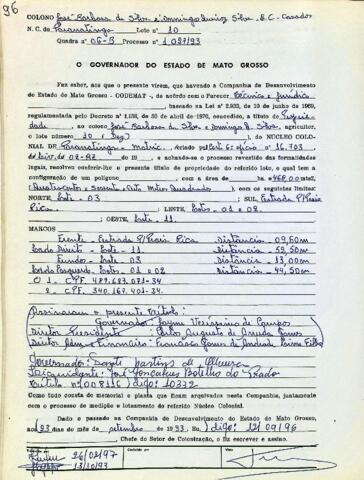 96
COLONO José Barbosa da Silva e Domingo Silva. B.C. Casados
N. C. de Paranatinga Lote n.º 10
Quadra n.º 06-B Processo n.º 1.027/93
O GOVERNADOR DO ESTADO DE MATO GROSSO
Faz saber, aos que o presente virem, que havendo a Companhia de Desenvolvimento
do Estado de Mato Grosso - CODEMAT -, de acordo com o Parecer Técnico e Jurídico
baseado na Lei n.º 2.933, de 10 de junho de 1969,
regulamentada pelo Decreto n.º 1.138, de 30 de abril de 1970, concedido, a título de
dade, ao colono José Barbosa da Silva e Domingo Silva, agricultor,
o lote número 10 DO NÚCLEO COLO-
NIAL DE Paranatinga - Matric. 16.703
Livro 02-AZ de 19 e achando-se o processo revestido das formalidades
legais, resolveu conferir-lhe o presente título de propriedade do referido lote, o qual tem a
configuração de um polígono com a área de 468,00
(Quatrocentos e Sessenta Oito Metros Quadrados), com os seguintes limites:
NORTE, Lote - 03 ; SUL, Estrada P/Praia
Rica ; LESTE, Lotes - 01 e 02
; OESTE, Lote - 11.
MARCOS
Frente - Estrada P/Praia Rica Distância - 09,60m
Lado Direito - Lote - 11 Distância - 39,50m
Fundo - Lote - 03 Distância - 13,00m
Lado Esquerdo - Lotes - 01 e 02 Distância - 44,50m
O 1 - C.P.F. 429.683.071-34
2 - C.P.F. 340.167.401-34
Assinaram o presente título:
Governador Jayme Veríssimo de Campos
Diretor Presidente : Carlos Augusto de Arruda Gomes
Diretor Adm. e Financeiro : Francisco Gomes de Andrade Lima Filho
Governador: Dante Martins de Oliveira
Liquidante: José Gonçalves Botelho do Prado
Título n.º 008116 digo: 10332
Como tudo consta do memorial e planta que ficam arquivados nesta Companhia, juntamente
com o processo de medição e loteamento do referido Núcleo Colonial.
Dado e passado na Companhia de Desenvolvimento do Estado de Mato Grosso,
aos 03 dias do mês de setembro de 1993. Eu, ) digo: 12/09/96
, Chefe do Setor de Colonização, o fiz escrever e assino.
26/02/97
13/10/93
Conferido por
Visto